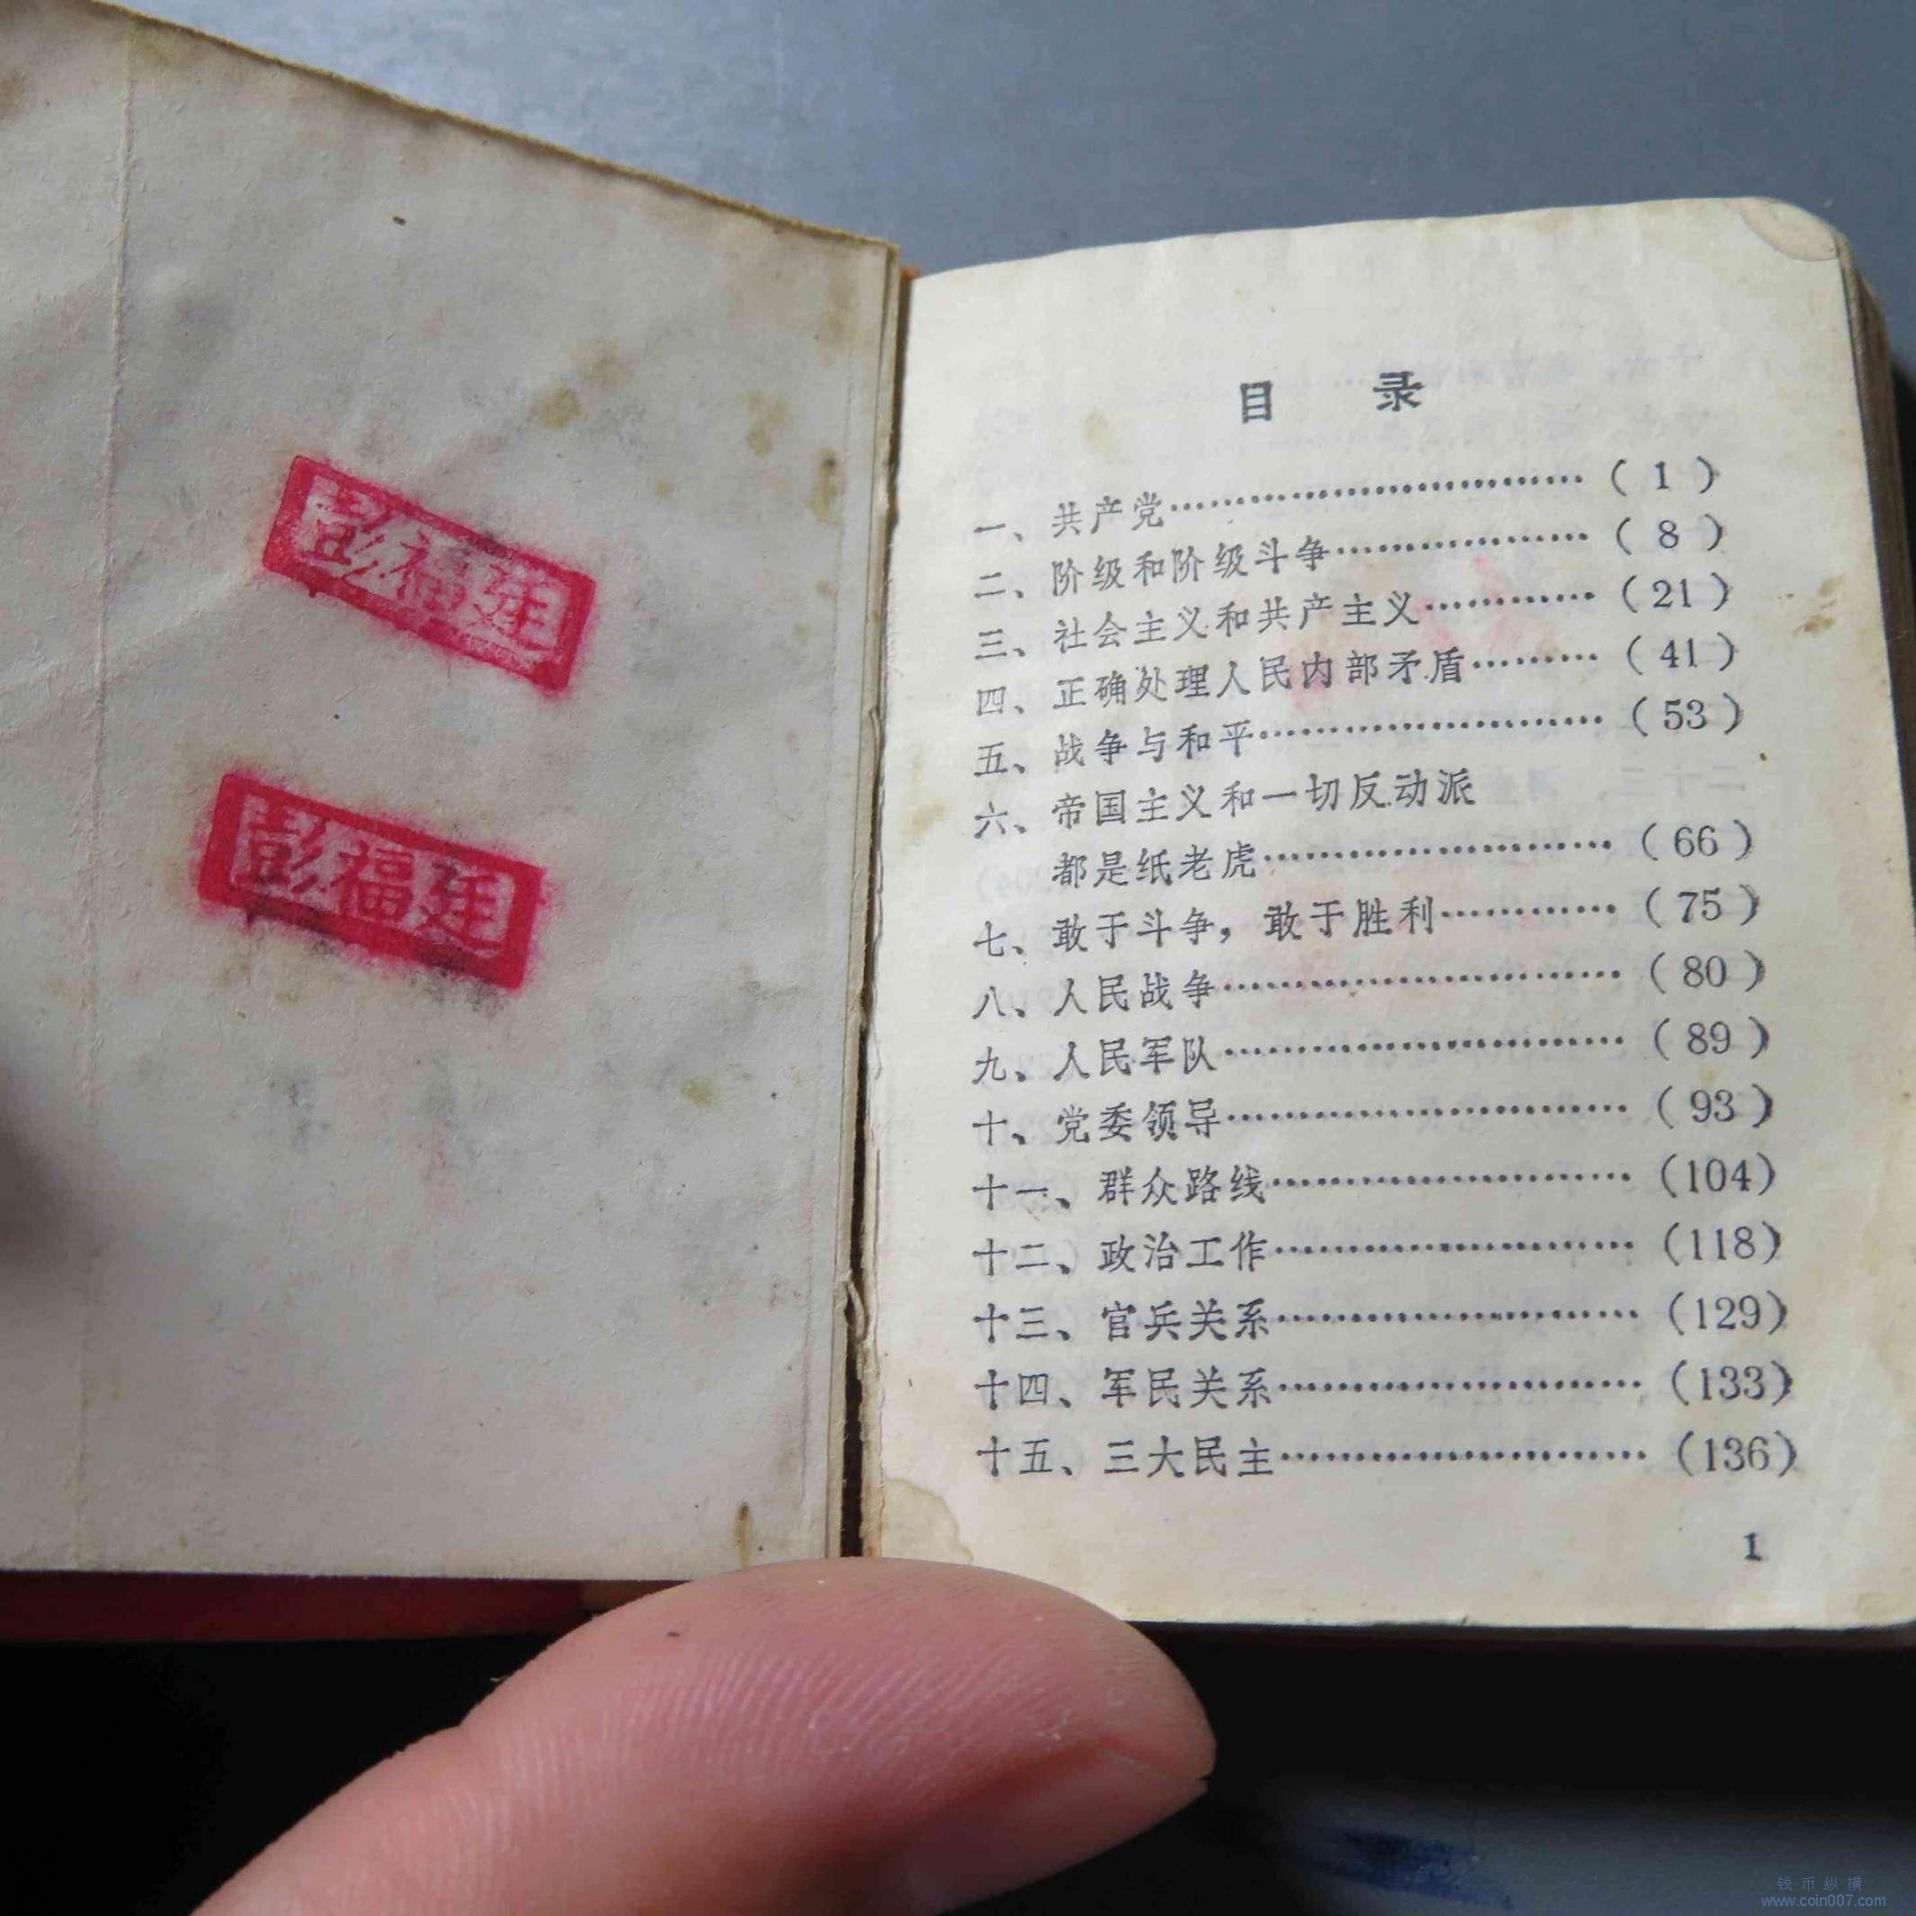 彭福廷
彭福廷
目 录
一、共产党……………………………( 1 )
二、阶级和阶级斗争………………( 8 )
三、社会主义和共产主义…………(21 )
四、正确处理人民内部矛盾………(41 )
五、战争与和平……………………(53 )
六、帝国主义和一切反动派
都是纸老虎……………………(66 )
七、敢于斗争，敢于胜利…………(75 )
八、人民战争………………………(80 )
九、人民军队………………………(89 )
十、党委领导………………………(93 )
十一、群众路线……………………(104)
十二、政治工作……………………(118)
十三、官兵关系……………………(129)
十四、军民关系……………………(133)
十五、三大民主……………………(136)
1
钱币纵横
www.coin007.com